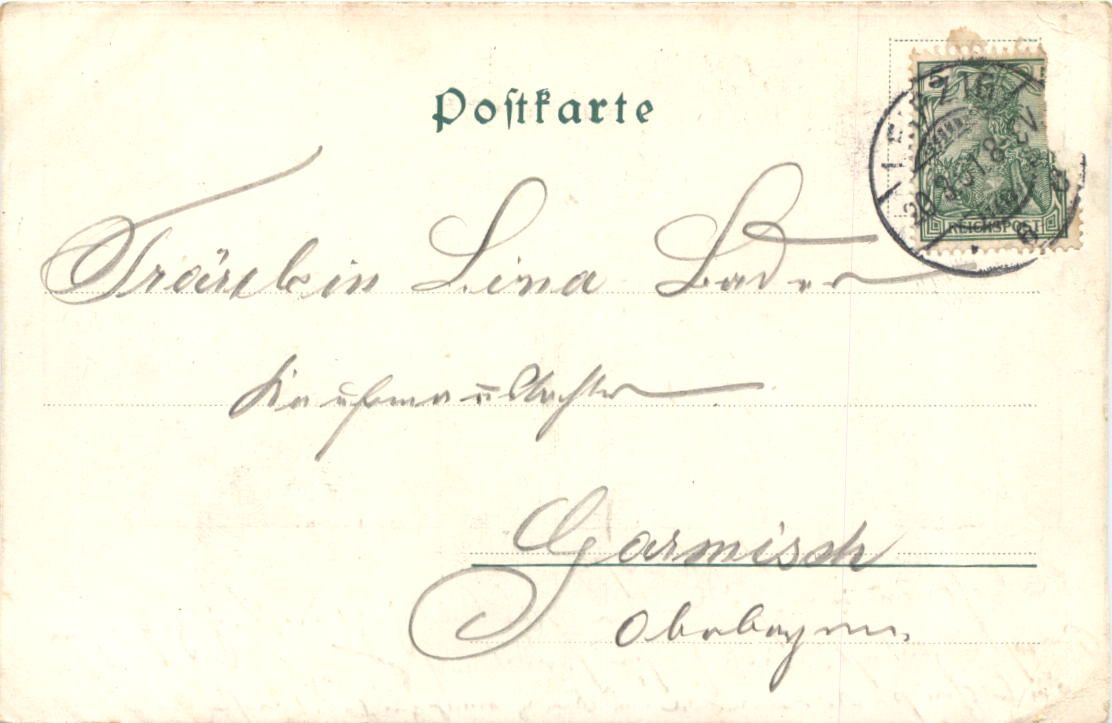 Postkarte
LEIPZIG
REICHSPOST
Fräulein Lina Bader
Kaufmannstochter
Garmisch
Oberbayern.